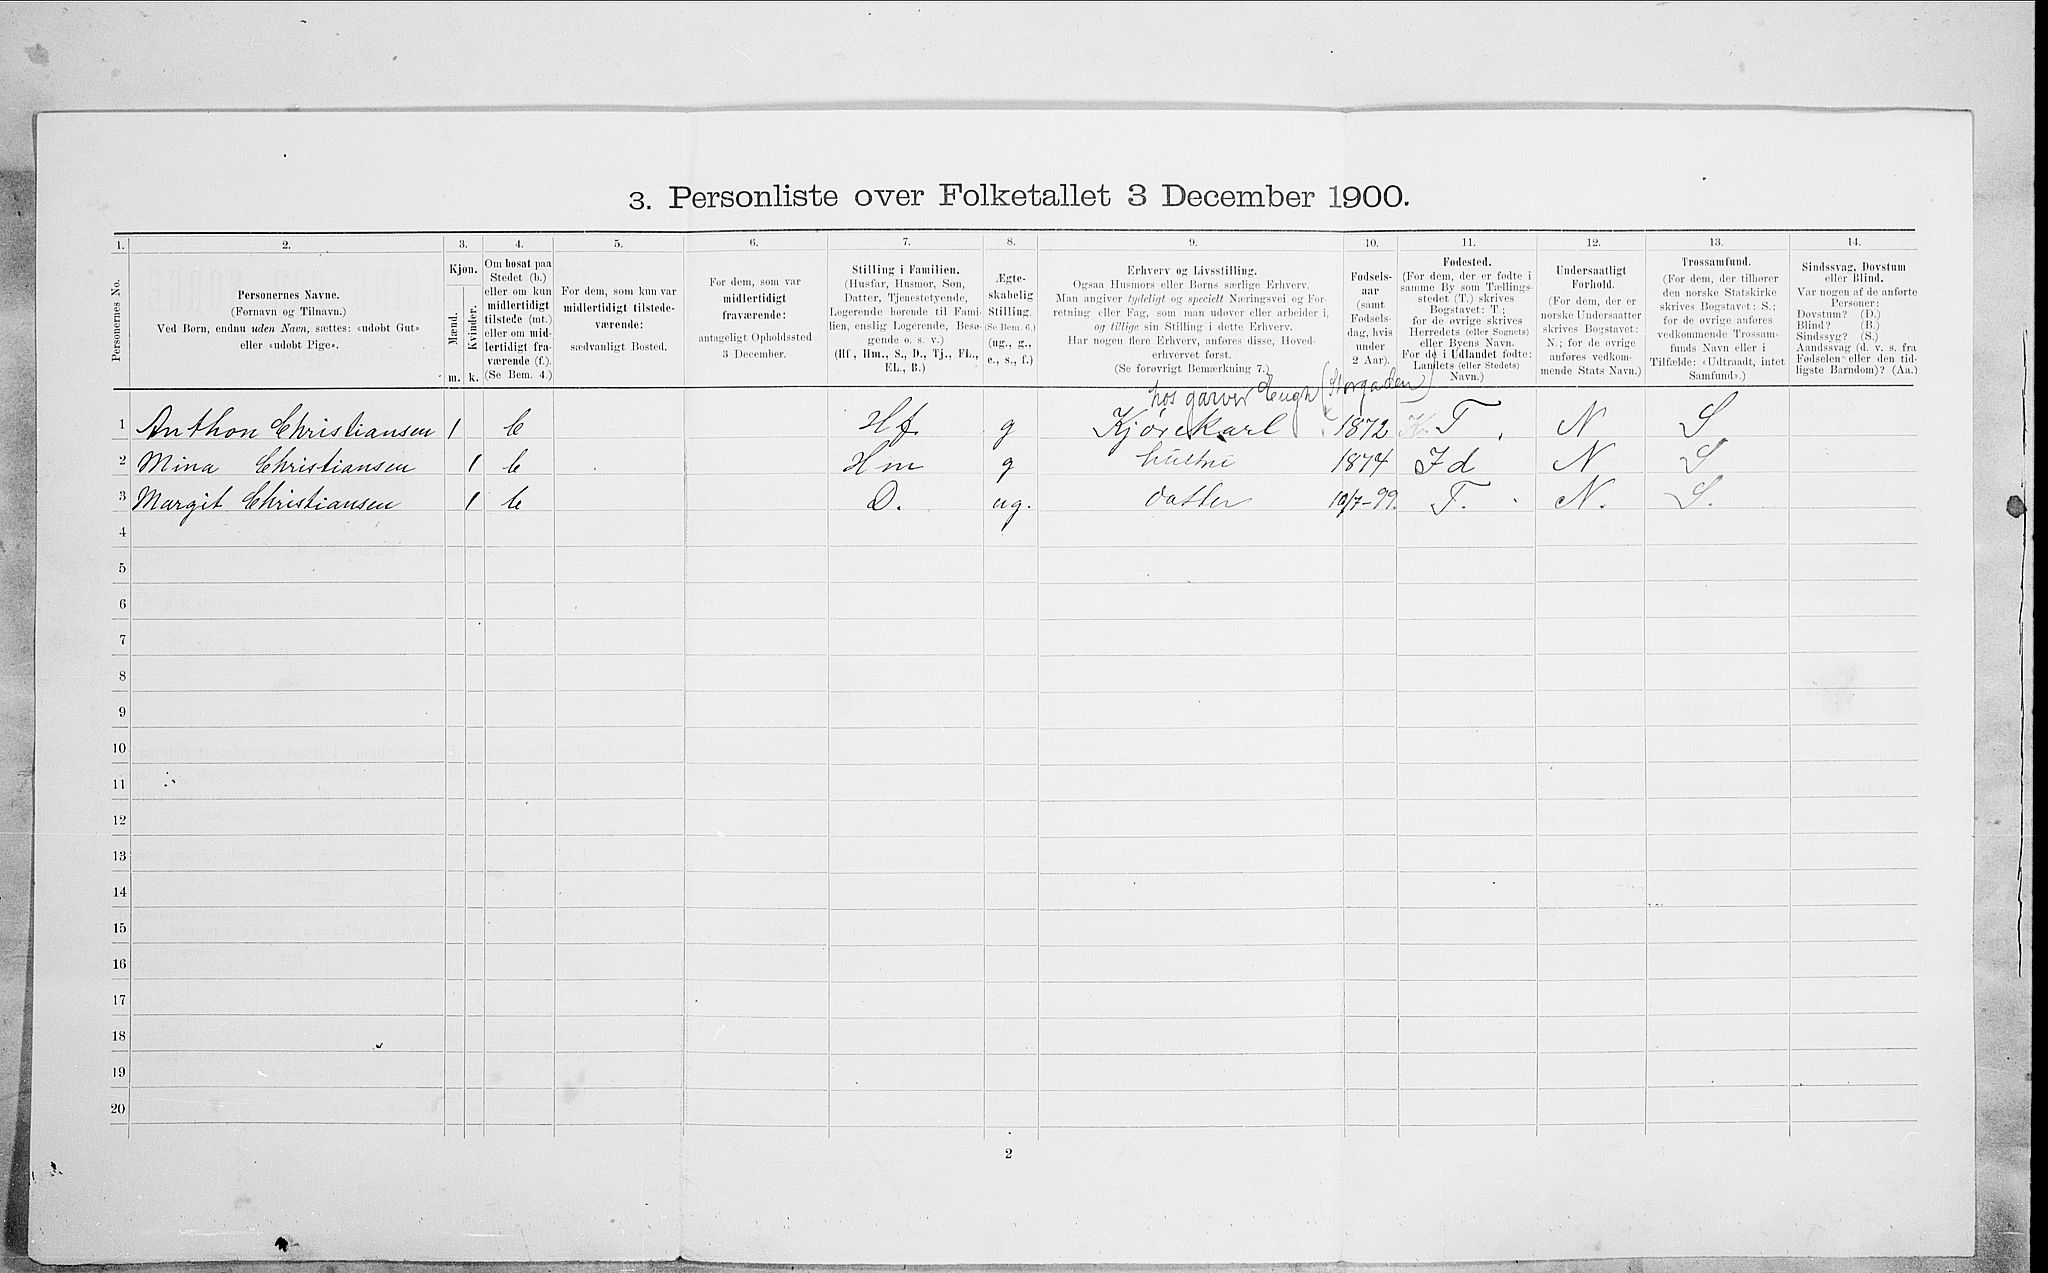 3. Personliste over Folketallet 3 December 1900.
1. 2. 3. 4. 5. 6. 7. 8. 9. 10. 11. 12. 13. 14.
Personernes No.
Personernes Navne.
(Fornavn og Tilnavn.)
Ved Børn, endnu uden Navn, sættes: «udøbt Gut»
eller «udøbt Pige».
Kjøn.
Mænd.
Kvinder.
m. k.
Om bosat paa
Stedet (b.)
eller om kun
midlertidigt
tilstede (mt.)
eller om mid-
lertidigt fra-
værende (f.)
(Se Bem. 4.)
For dem, som kun var
midlertidigt tilstede-
værende:
sædvanligt Bosted.
For dem, som var
midlertidigt
fraværende:
antageligt Opholdssted
3 December.
Stilling i Familien.
(Husfar, Husmor, Søn,
Datter, Tjenestetyende,
Logerende hørende til Fami-
lien, enslig Logerende, Besø-
gende o. s. v.)
(Hf., Hm., S., D., Tj., FL.,
EL., B.)
Ægte-
skabelig
Stilling.
(Se Bem. 6.)
(ug., g.,
e., s., f.)
Erhverv og Livsstilling.
Ogsaa Husmors eller Børns særlige Erhverv.
Man angiver tydeligt og specielt Næringsvei og For-
retning eller Fag, som man udøver eller arbeider i,
og tillige sin Stilling i dette Erhverv.
Har nogen flere Erhverv, anføres disse, Hoved-
erhvervet først.
(Se forøvrigt Bemærkning 7.)
Fødsels-
aar
(samt
Fødsels-
dag, hvis
under
2 Aar).
Fødested.
(For dem, der er fødte i
samme By som Tællings-
stedet (T.) skrives
Bogstavet: T;
for de øvrige skrives
Herredets (eller Sognets)
eller Byens Navn.
For de i Udlandet fødte:
Landets (eller Stedets)
Navn.)
Undersaatligt
Forhold.
(For dem, der er
norske Undersaatter
skrives Bogstavet:
N.; for de øvrige
anføres vedkom-
mende Stats Navn.)
Trossamfund.
(For dem, der tilhører
den norske Statskirke
skrives Bogstavet: S.;
for de øvrige anføres
vedkommende Trossam-
funds Navn eller i
Tilfælde: «Udtraadt, intet
Samfund».)
Sindssvag, Døvstum
eller Blind.
Var nogen af de anførte
Personer:
Døvstum? (D.)
Blind? (B.)
Sindssyg? (S.)
Aandssvag (d. v. s. fra
Fødselen eller den tid-
ligste Barndom)? (Aa.)
hos garver Eugh (Storgaden)
1 Anthon Christiansen 1 b Hf. g Kjørekarl 1872 T. N S
2 Mina Christiansen 1 b Hm g hustru 1874 Id N S
3 Margit Christiansen 1 b D. ug. datter 10/7-99. T. N. S.
4
5
6
7
8
9
10
11
12
13
14
15
16
17
18
19
20
2